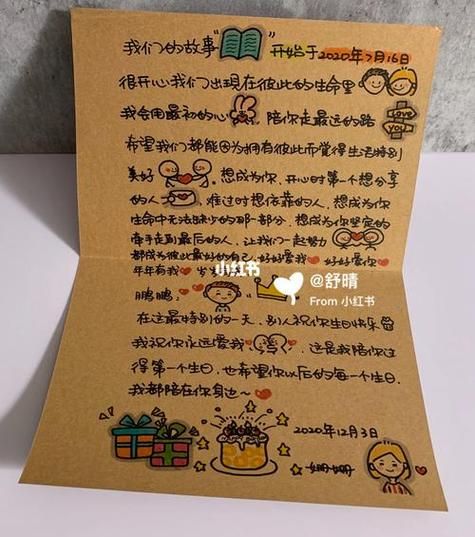 我们的故事“ ”开始于2020年7月16日
很开心我们出現在彼此的生命里
我会用最初的心 陪你走最远的路
Love
you
希望我们都能因为拥有彼此而觉得生活特别
美好 。想成为你,开心时第一个想分享
的人 ,难过时想依靠的人,想成为你
生命中无法缺少的那一部分,想成为你坚定的
牵手走到最后的人,让我们一起努力
都成为彼此最好的自己,好好爱我 好好爱你
年年有我 岁岁
小红书
@舒晴
From 小红书
鹏鹏:
在这最特别的一天,别人祝你生日快乐
我祝你永远爱我 ,这是我陪你过
得第一个生日,也希望你以后的每一个生日,
我都陪在你身边~
2020年12月3日
姗姗